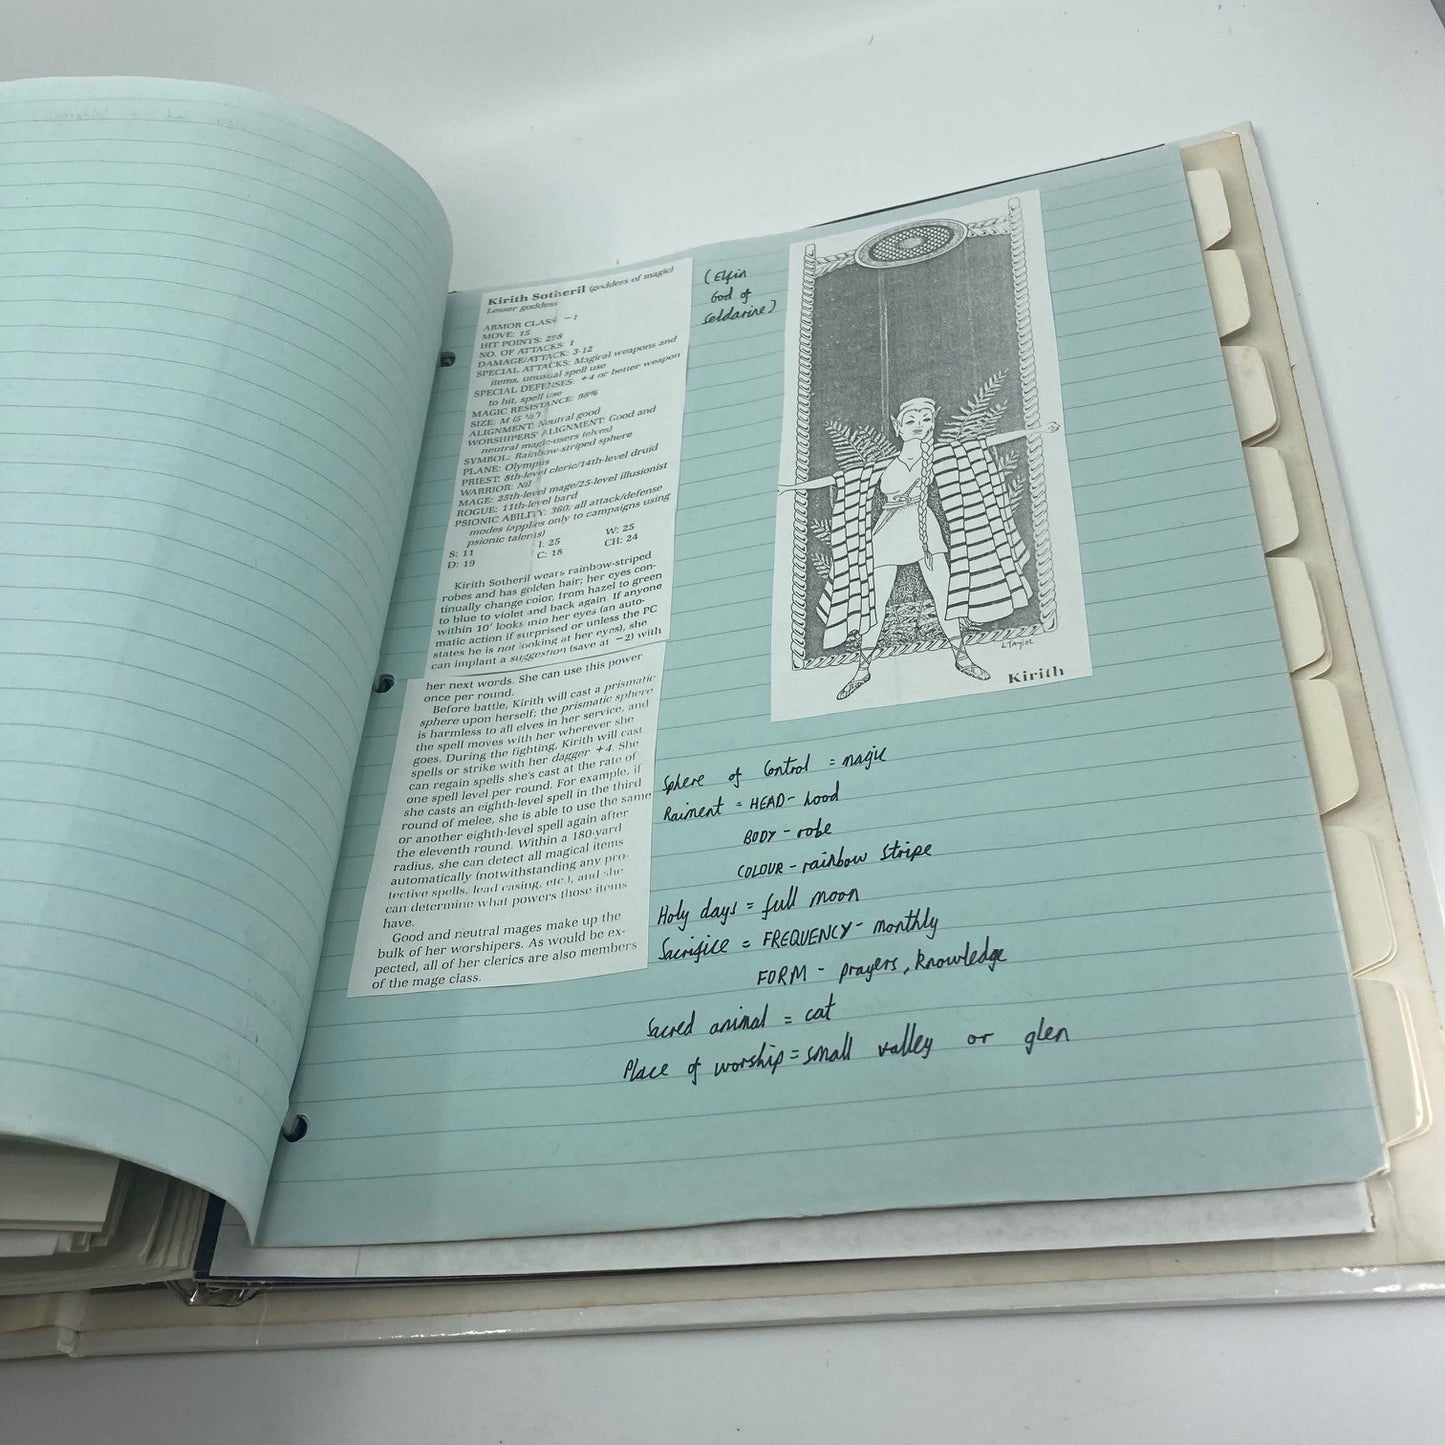 Kirith Sotheril (goddess of magic)
Lesser goddess
ARMOR CLASS: -1
MOVE: 15
HIT POINTS: 298
NO. OF ATTACKS: 1
DAMAGE/ATTACK: 3-12
SPECIAL ATTACKS: Magical weapons and
items, unusual spell use
SPECIAL DEFENSES: +4 or better weapon
to hit, spell use
MAGIC RESISTANCE: 98%
SIZE: M (5 ½')
ALIGNMENT: Neutral good
WORSHIPERS' ALIGNMENT: Good and
neutral magic-users (elves)
SYMBOL: Rainbow-striped sphere
PLANE: Olympus
PRIEST: 8th-level cleric/14th-level druid
WARRIOR: Nil
MAGE: 25th-level mage/25-level illusionist
ROGUE: 11th-level bard
PSIONIC ABILITY: 360; all attack/defense
modes (applies only to campaigns using
psionic talents)
S: 11 I. 25 W: 25
D: 19 C: 18 CH: 24
Kirith Sotheril wears rainbow-striped
robes and has golden hair; her eyes con-
tinually change color, from hazel to green
to blue to violet and back again. If anyone
within 10' looks into her eyes (an auto-
matic action if surprised or unless the PC
states he is not looking at her eyes), she
can implant a suggestion (save at -2) with
her next words. She can use this power
once per round.
Before battle, Kirith will cast a prismatic
sphere upon herself; the prismatic sphere
is harmless to all elves in her service, and
the spell moves with her wherever she
goes. During the fighting, Kirith will cast
spells or strike with her dagger +4. She
can regain spells she's cast at the rate of
one spell level per round. For example, if
she casts an eighth-level spell in the third
round of melee, she is able to use the same
or another eighth-level spell again after
the eleventh round. Within a 180-yard
radius, she can detect all magical items
automatically (notwithstanding any pro-
tective spells, lead casing, etc.), and she
can determine what powers those items
have.
Good and neutral mages make up the
bulk of her worshipers. As would be ex-
pected, all of her clerics are also members
of the mage class.
(Elfin
God of
Seldarine)
L Taylor
Kirith
Sphere of Control = magic
Raiment = HEAD - hood
BODY - robe
COLOUR - rainbow stripe
Holy days = full moon
Sacrifice = FREQUENCY - monthly
FORM - prayers, knowledge
Sacred animal = cat
Place of worship = small valley or glen